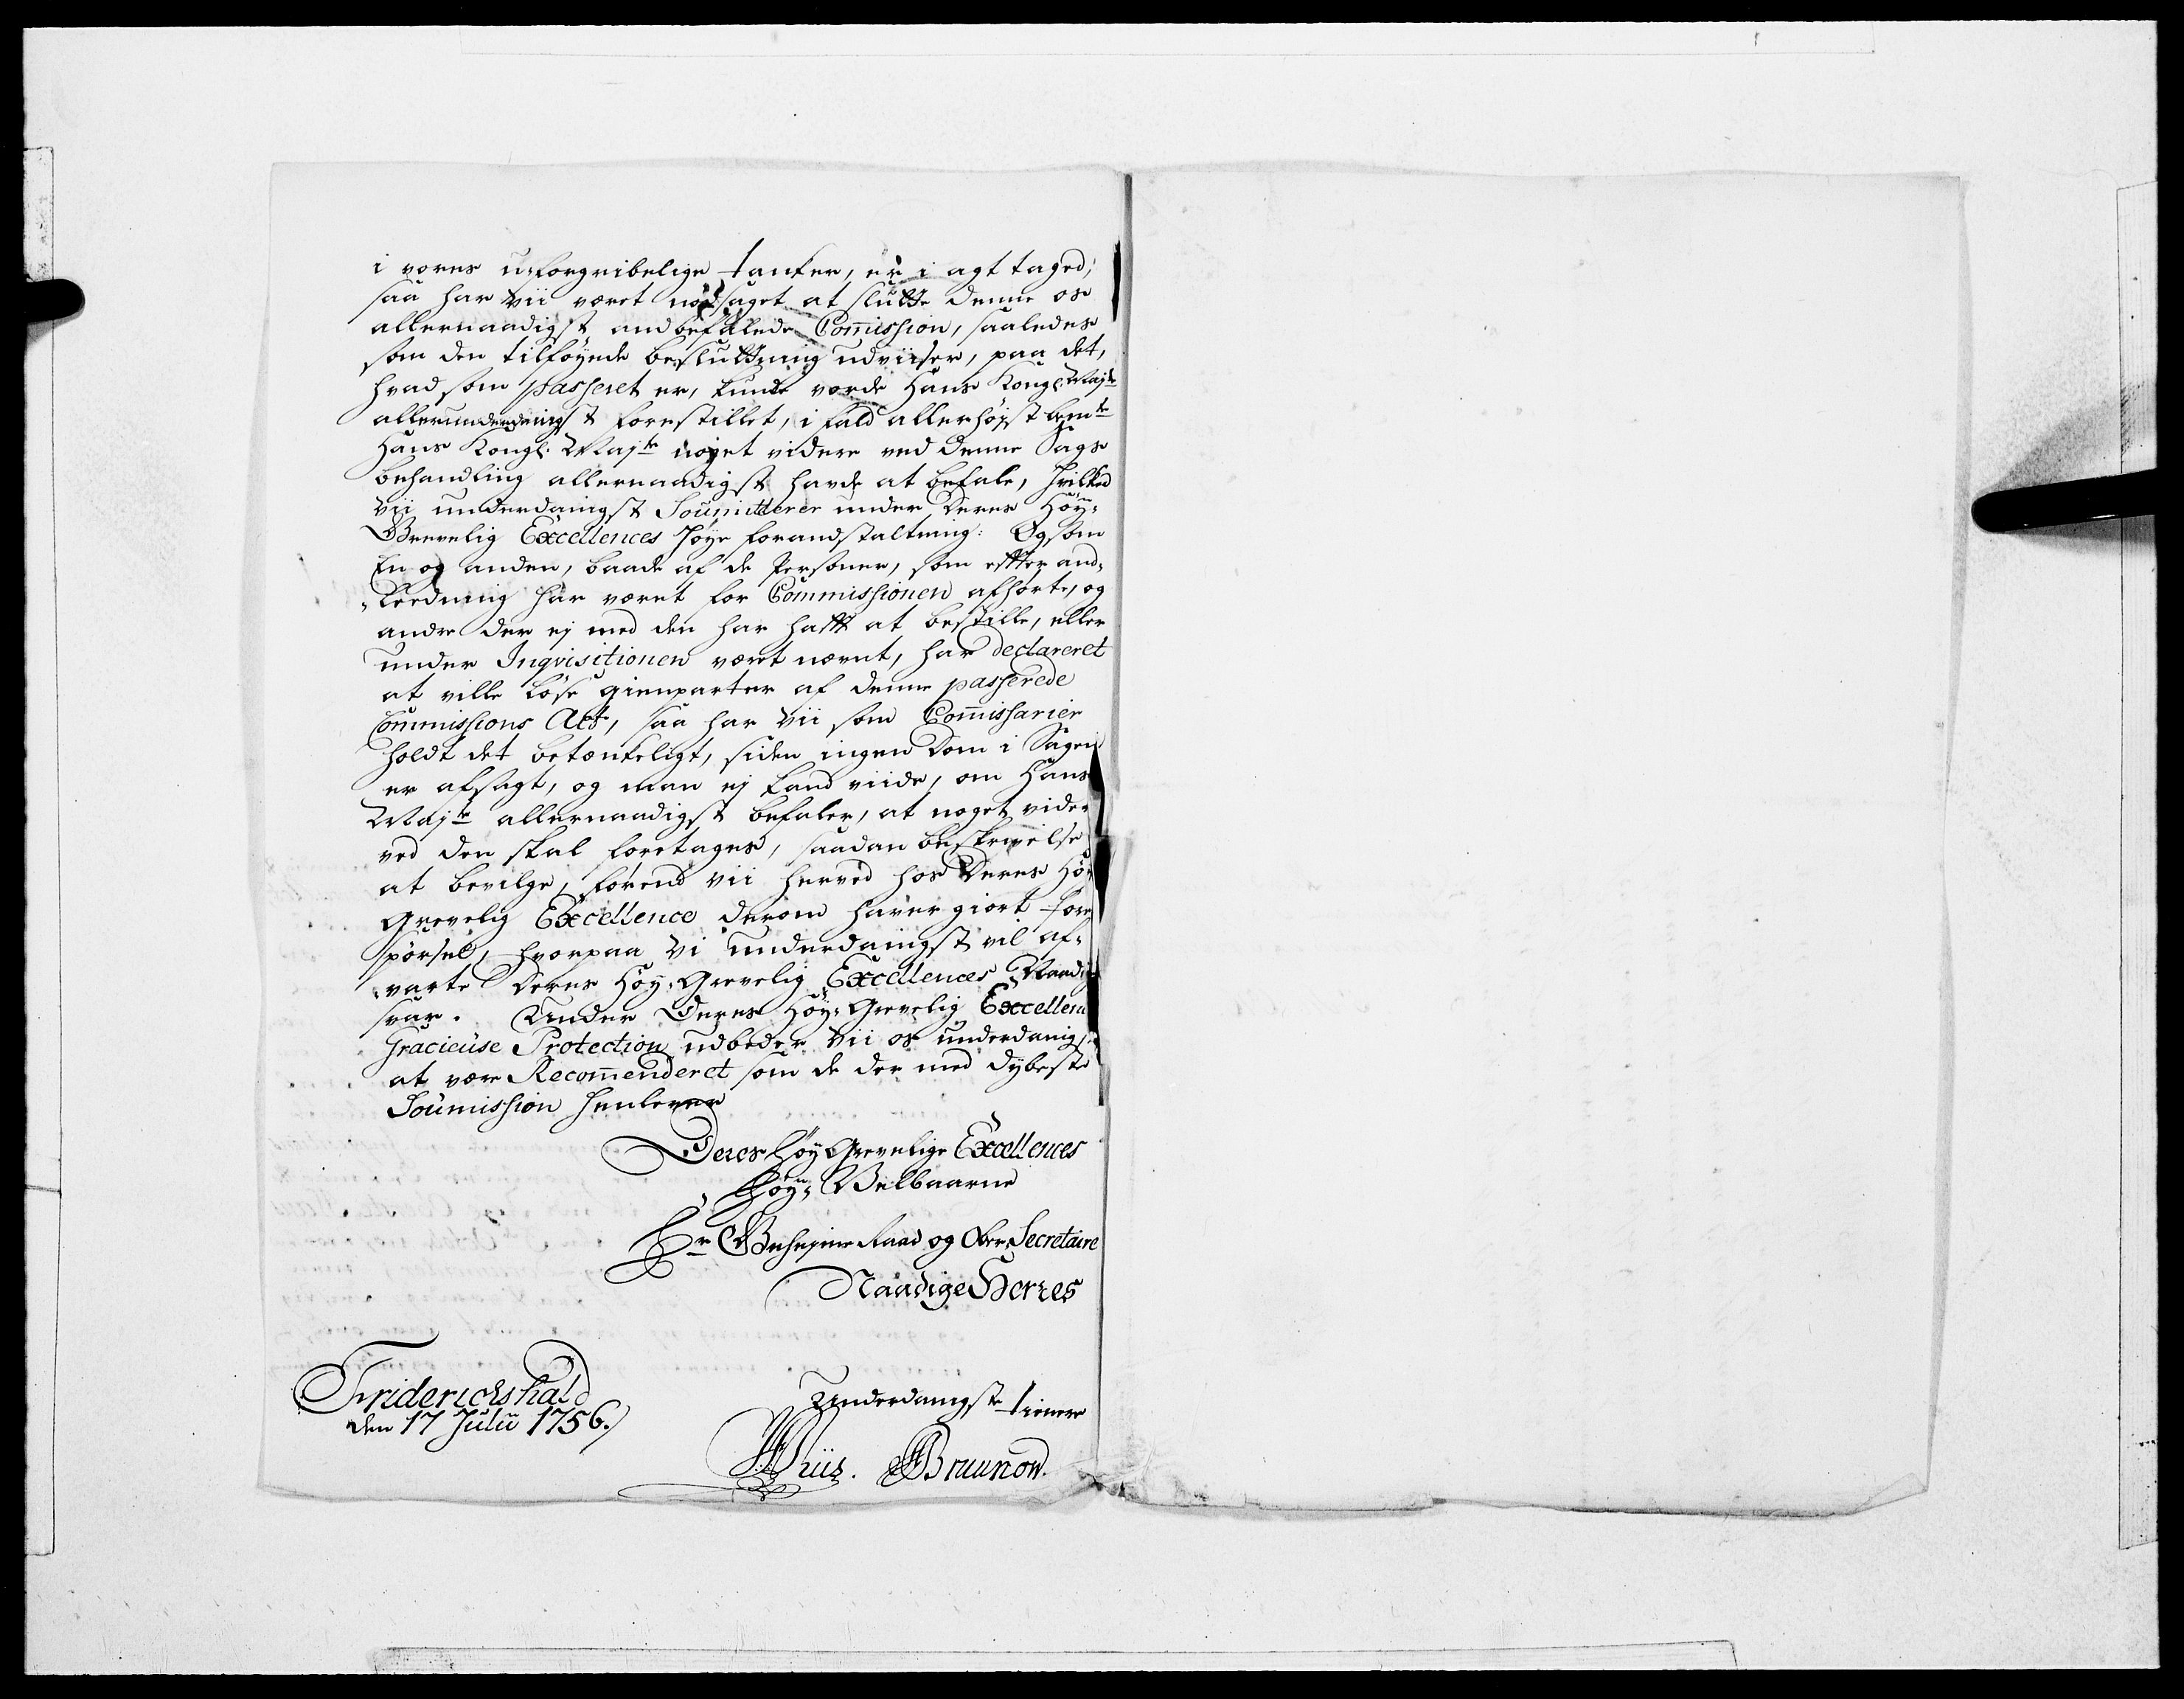 i vores u-forgribelige tanker, er i agt taged;
saa har vii været nødsaget at slutte denne os
allernaadigst andbefalede Com̅ission, saaledes
som den tilføyede beslutning udviiser, paa det,
hvad som passeret er, kunde vorde Hans Kongl: Majte
allerunderdanigst forestillet, i fald allerhøjst bemte
Hans Kongl: Majte noget videre ved denne Sags
behandling allernaadigst havde at befale, hvilked
vii underdanigst Soumitterer under Deres Høy-
Grevelig Excellences høye forandstaltning: Og som
En og anden, baade af de Personer, som effter and-
-leedning har været for Commissionen afhørte, og
andre der ej med den har hafft at bestille, eller
under Inqvisitionen vært nævnt, har declareret
at ville løse gienparter af denne passerede
Commissions Act, saa har vii som Com̅issarier
holdt det betænkeligt, siden ingen Dom i Sagen
er afsagt, og man ej kand viide, om Hans
Majte allernaadigst befaler, at noget vider
ved den skal foretages, saadan beskrivelse
at bevilge, førend vii herved hos Deres Høy
Grevelig Excellence derom haver giort fore
spørsel, hvorpaa vi underdanigst vil af-
-varte Deres Høy-Grevelig Excellences Naadig
svar. Under Deres Høy-Grevelig Excellen
Gracieuse Protection udbeder vii os underdanigst
at være Recom̅enderet som de der med dybeste
Soumission henlever
Deres Høy Grevelige Excellences
Høy- Velbaarne
Hr Geheime Raad og Over Secretaire
Naadige Herres
Friderichshald
den 17 Julii 1756.
Underdanigste tienere
Huus. Bruunow.